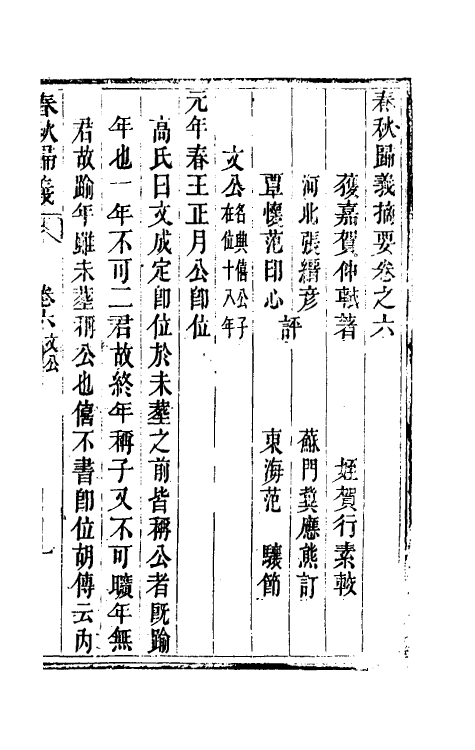 春秋歸義摘要卷之六
獲嘉賀仲軾著　姪賀行素較
河北張縉彥　蘇門冀應熊訂
覃懷范印心　評　東海范　驤節
文公名興僖公子在位十八年
元年春王正月公卽位
高氏曰文成定卽位於未塟之前皆稱公者旣踰
年也一年不可二君故終年稱子又不可曠年無
君故踰年雖未塟稱公也僖不書卽位胡傳云內
春秋歸義　卷六文公　一